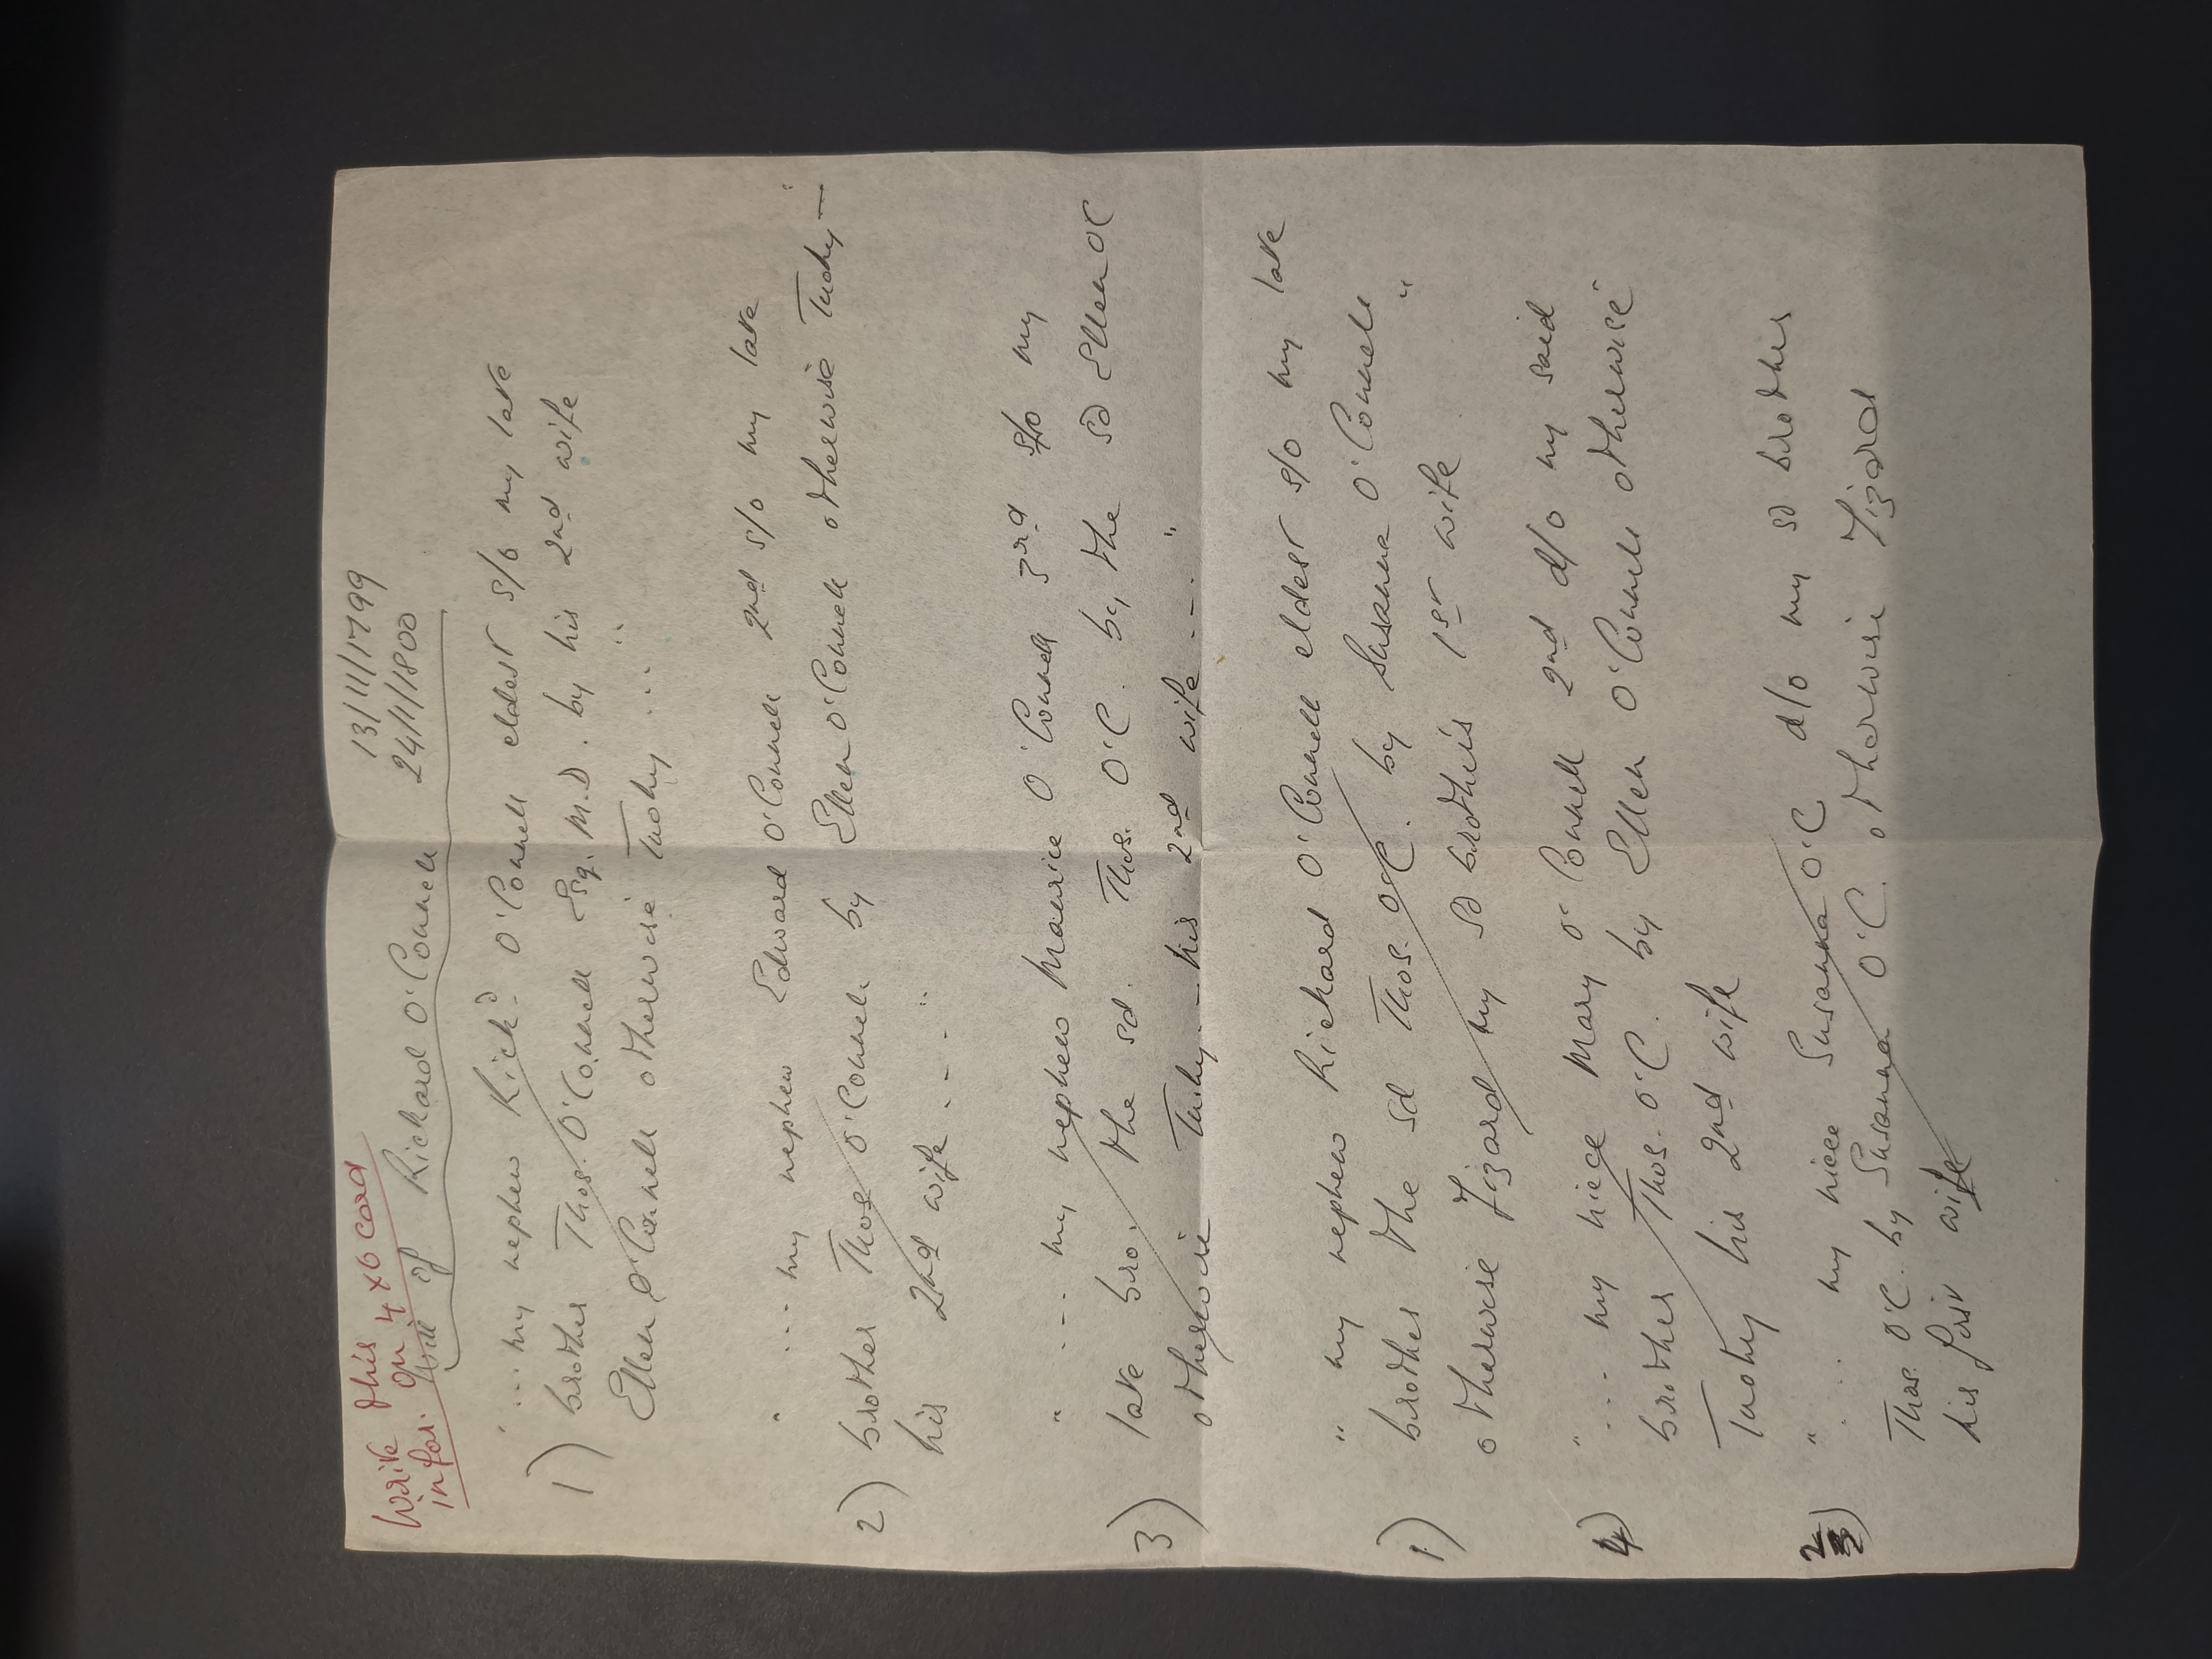 Write this
infor. on 4 x 6 card
Will of Richard O'Connell 13/11/1799
24/1/1800
1) "... my nephew Richd O'Connell eldest s/o my late
brother Thos. O'Connell Esq. M.D. by his 2nd wife
Ellen O'Connell otherwise Tuohy ...."
2) "... my nephew Edward O'Connell 2nd s/o my late
brother Thos O'Connell by Ellen O'Connell otherwise Tuohy —"
his 2nd wife - - - "
3) " - - - my nephew Maurice O'Connell 3rd s/o my
late bro. the sd. Thos. O'C. by the sd Ellen OC
otherwise Tuohy - his 2nd wife - - - "
1) " my nephew Richard O'Connell eldest s/o my late
brother the sd Thos. O'C. by Susanna O'Connell
otherwise Fizard my sd brother's 1st wife "
4) " ... my niece Mary O'Connell 2nd d/o my said
brother Thos. O'C. by Ellen O'Connell otherwise
Tuohy his 2nd wife
2) " ... my niece Susanna O'C d/o my sd brother
Thos. O'C. by Susanna O'C. otherwise Fizard
his first wife